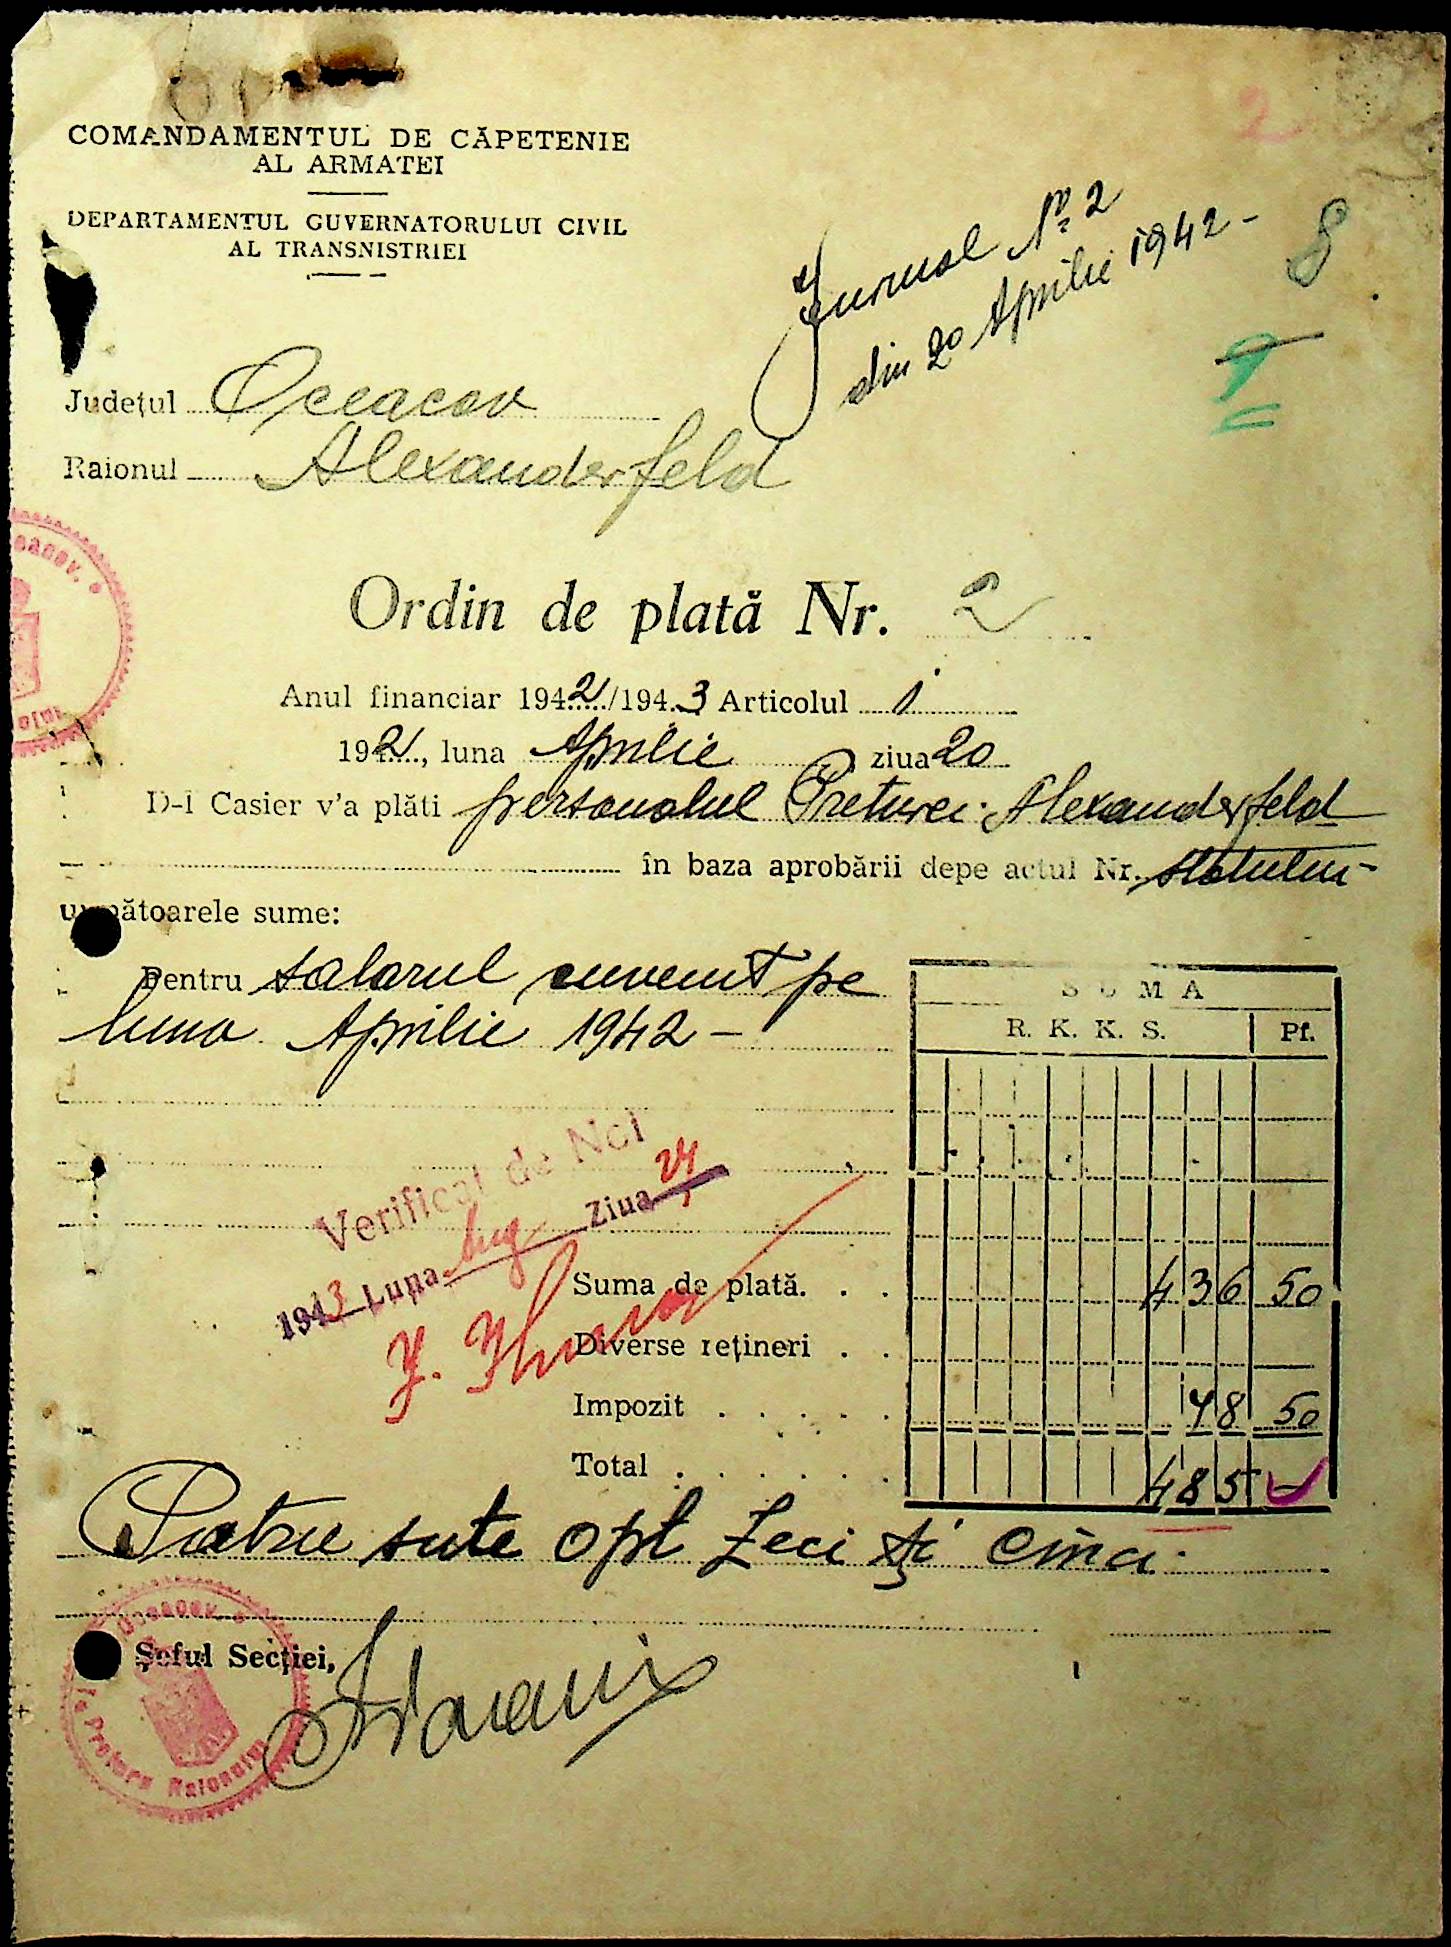 2
COMANDAMENTUL DE CĂPETENIE
AL ARMATEI
DEPARTAMENTUL GUVERNATORULUI CIVIL
AL TRANSNISTRIEI
Jurnal No 2
din 20 Aprilie 1942 -
8
9
Județul Oceacov
Raionul Alexanderfeld
Ordin de plată Nr. 2
Anul financiar 1942/1943 Articolul 1
1942, luna Aprilie ziua 20
D-l Casier v'a plăti personalul Preturei Alexanderfeld
în baza aprobării depe actul Nr. statului
următoarele sume:
Pentru salarul cuvenit pe
luna Aprilie 1942 -
SUMA
R. K. K. S. Pf.
Verificat de Noi
1943 Luna Aug Ziua
Suma de plată. . . 436 50
Diverse rețineri . .
Impozit . . . . . 48 50
Total . . . . . . 485 -
Patru sute opt zeci și cinci
Șeful Secției,
Oceacov
Pretura Raionului